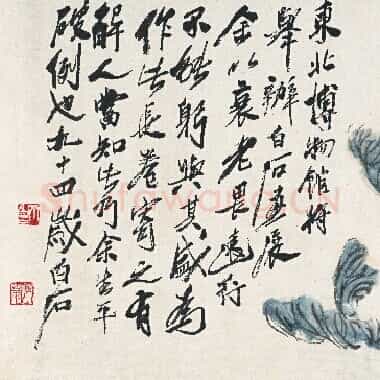 東北博物館將
舉辦白石畫展
余以衰老畏遠行
不能躬與其盛為
作此長卷寄之有
解人當知此余生平
破例也九十四歲白石
Shufawang.CN